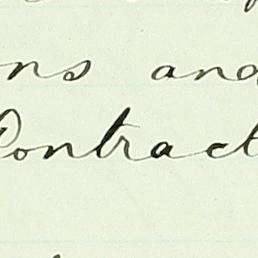 ns and
Contract